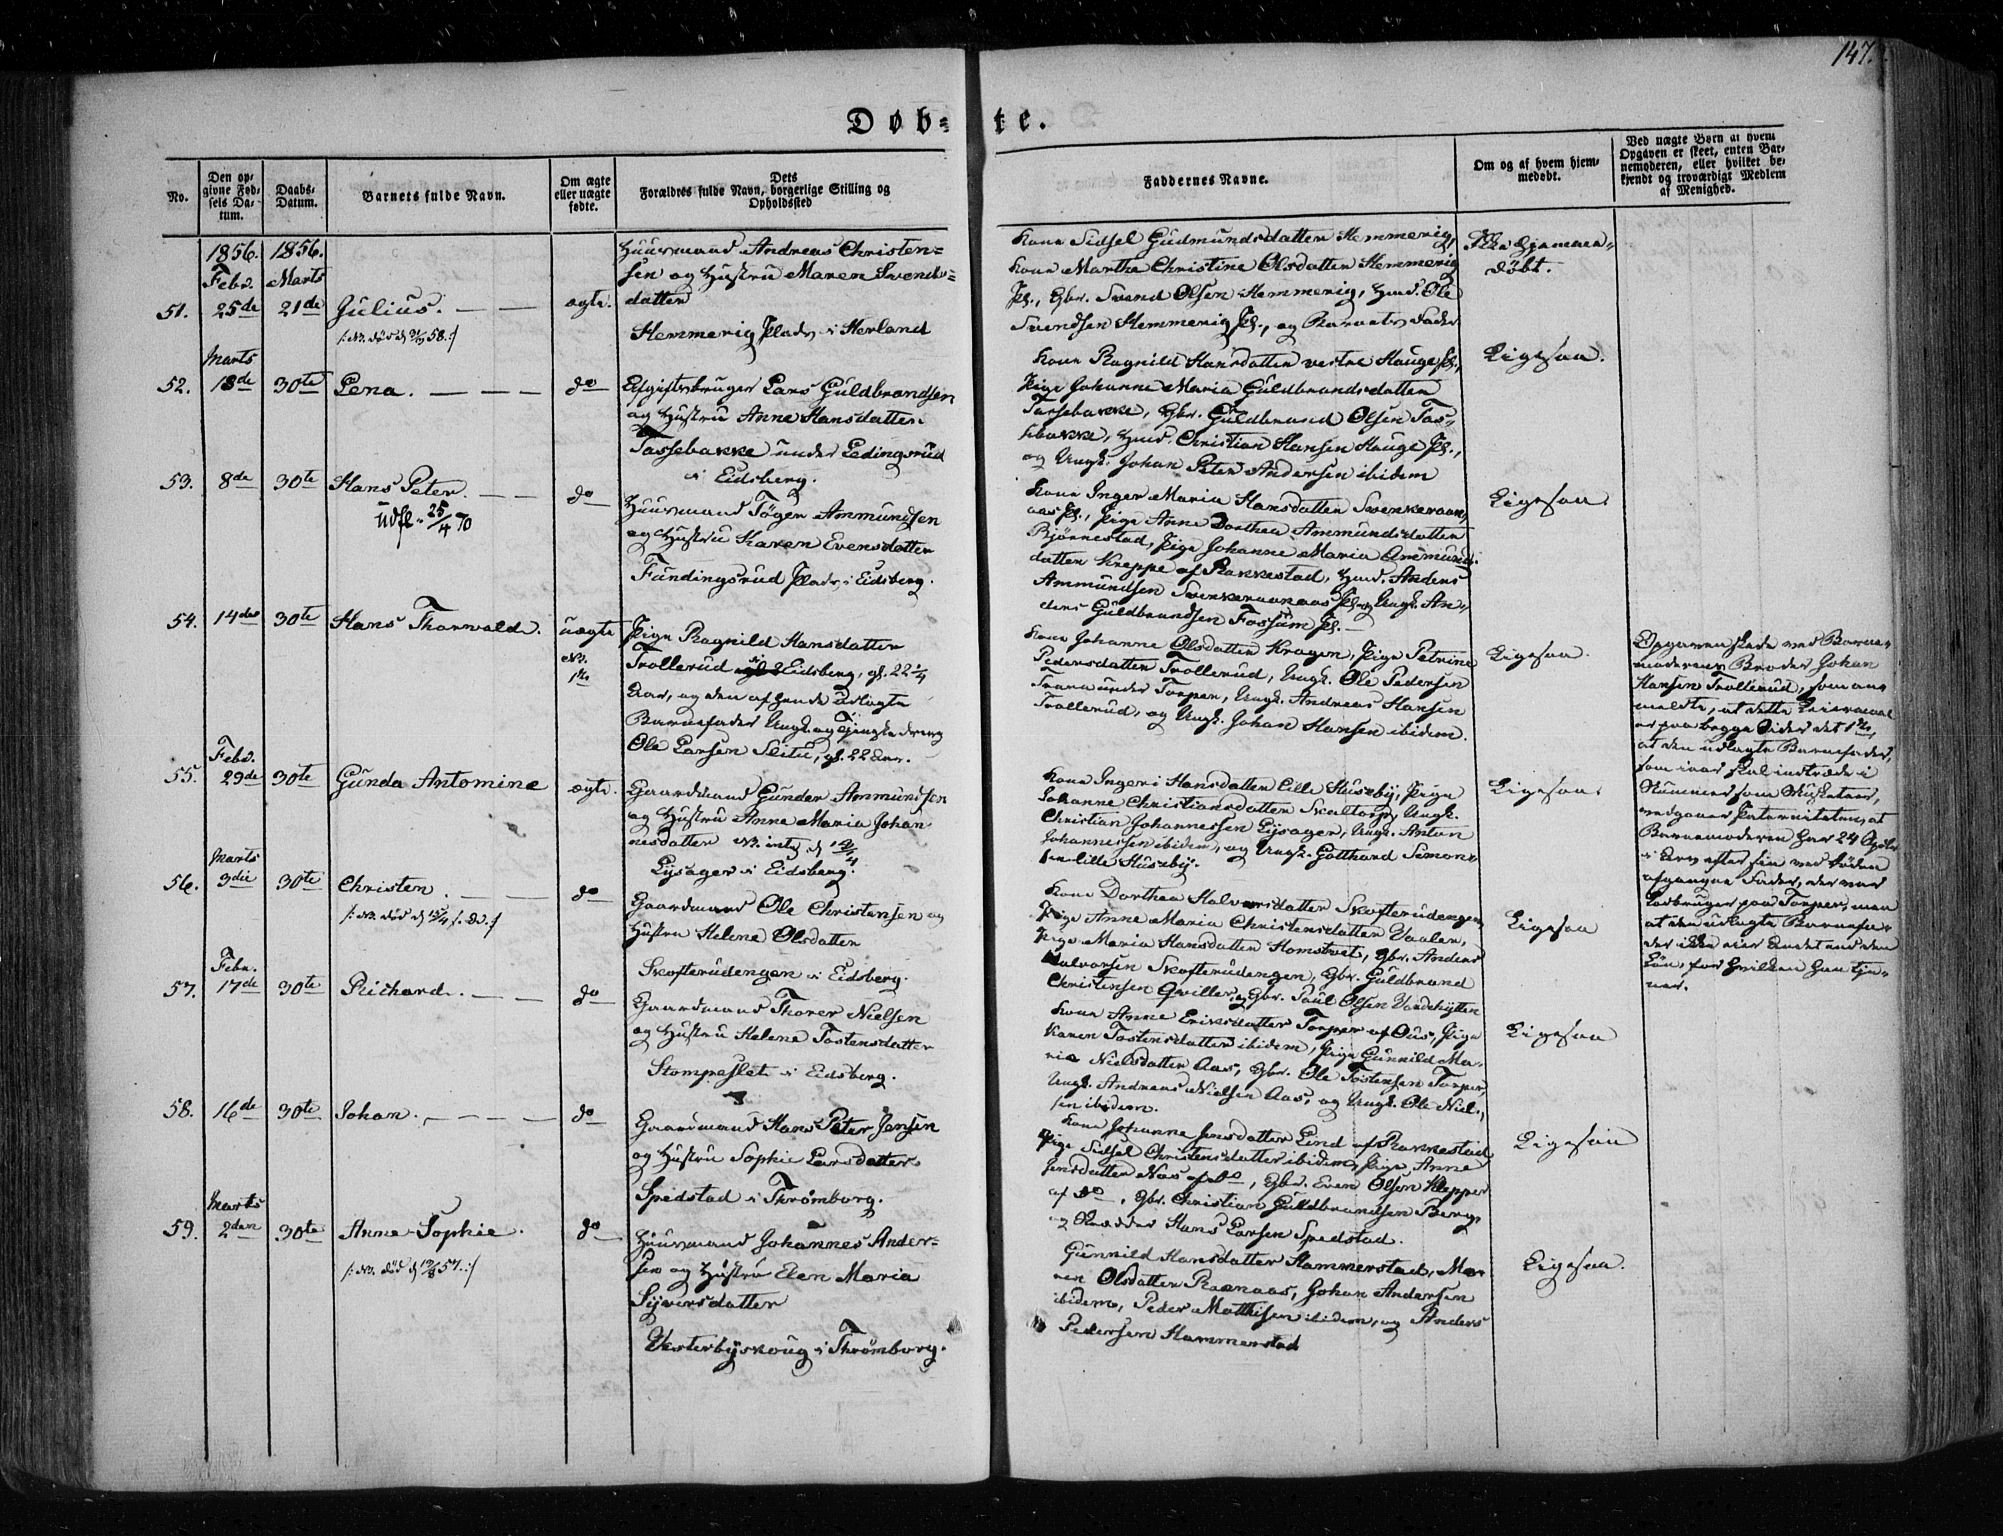 147.
Døb-
te.
No.
Den op-
givne Fød-
sels Da-
tum.
Daabs-
Datum.
Barnets fulde Navn.
Om ægte
eller uægte
fødte.
Dets
Forældres fulde Navn, borgerlige Stilling og
Opholdssted
Faddernes Navne.
Om og af hvem hjem-
medøbt.
Ved uægte Børn at hvem
Opgaven er skeet, enten Bar-
nemoderen, eller hvilket be-
kjendt og troværdigt Medlem
af Menighed.
1856. 1856.
Febr. Marts
51. 25de 21de Julius. ægte.
Huusmand Andreas Christen-
sen og Hustru Maren Svends-
datter
Hemmerig Plads i Herland
Kone Sidsel Gudmundsdatter Hemmerig,
Kone Marthe Christine Olsdatter Hemmerig
Pl., Gbr. Svend Olsen Hemmerig, Huusm. Ole
Svendsen Hemmerig Pl., og Barnets Fader
Ikke hjemme-
døbt.
Marts
52. 18de 30te Lena. do
Afgiftsbruger Lars Guldbrandsen
og Hustru Anne Hansdatter
Tassebakke under Ledingsrud
i Eidsberg.
Kone Ragnild Hansdatter vestre Hauge Pl.,
Pige Johanne Maria Guldbrandsdatter
Tassebakke, Gbr. Guldbrand Olsen Tas-
sebakke, Huusm. Christian Hansen Hauge Pl.,
og Ungk. Johan Peter Andersen ibidem
Ligesaa.
53. 8de 30te Hans Peter. do
Udfl. 25/4 70
Huusmand Tøger Ammundsen
og Hustru Karen Evensdatter
Fundingsrud Plads i Eidsberg.
Kone Inger Maria Hansdatter
aas Pl., Pige Anne Dorthea Ammundsdatter
Bjørnestad, Pige Johanne Maria Ammunds-
datter Kreppe af Rakkestad, Huusm. Anders
Ammundsen Pl. og Ungk. An-
ders Guldbrandsen Fossum Pl.
Ligesaa.
54. 14de 30te Hans Thorvald. uægte
NB.
1ste
Pige Ragnild Hansdatter
Trollerud i Eidsberg, gl. 22 1/4
Aar, og den af hende udlagte
Barnefader Ungk. og Tjenestedreng
Ole Larsen Slitu, gl. 22 Aar.
Kone Johanne Olsdatter Kragen, Pige Petrine
Pedersdatter Trollerud, Ungk. Ole Pedersen
Trana under Torper, Ungk. Andreas Hansen
Trollerud, og Ungk. Johan Hansen ibidem.
Ligesaa.
Opgaven skede ved Barne-
moderens Broder Johan
Hansen Trollerud, som an-
meldte, at dette Leiermaal
er paa begge Sider det 1ste,
at den udlagte Barnefader,
som iaar skal indtræde i
Nummer som Musketeer,
vedgaaer Paterniteten, at
Barnemoderen har 24
i Arv efter sin ved Døden
afgangne Fader, der var
Torper, men
at den udlagte Barnefa-
der ikke eier Andet end den
Løn, for hvilken han tje-
ner.
Febr.
55. 29de 30te Gunda Antomine ægte.
Gaardmand Gunder Ammundsen
og Hustru Anne Maria Johan-
nesdatter
Lysager i Eidsberg.
Kone Ingeri Hansdatter Lille Huseby, Pige
Johanne Christiansdatter Skaltorp, Ungk.
Christian Johannessen Lysager, Ungk. Anton
Johannessen ibidem, og Ungk. Gotthard Simon-
sen Lille Huseby.
Ligesaa.
Marts
56. 3die 30te Christen. do
Gaardmand Ole Christensen og
Hustru Helene Olsdatter
Skofterudengen i Eidsberg.
Kone Dorthea Halvorsdatter Skofterudengen,
Pige Anne Maria Christensdatter Vaaler,
Pige Maria Hansdatter Homstvet, Gbr. Anders
Halvorsen Skofterudengen, Gbr. Guldbrand
Christensen Qviller, og Gbr. Paul Olsen
Ligesaa
Febr.
57. 17de 30te Richard. do
Gaardmand Thorer Nielsen
og Hustru Helene Tostensdatter
Stompeslet i Eidsberg.
Kone Anne Eriksdatter Torper af Ous, Pige
Karen Tostensdatter ibidem, Pige Gunnild Ma-
ria Nielsdatter Aas, Gbr. Ole Tostensen Torper,
Ungk. Andreas Nielsen Aas, og Ungk. Ole Niel-
sen ibidem.
Ligesaa
58. 16de 30te Johan. do
Gaardmand Hans Peter Jensen
og Hustru Sophie Larsdatter
Spedstad i Thrømborg.
Kone Johanne Jensdatter Lind af Rakkestad,
Pige Sidsel Christensdatter ibidem, Pige Anne
Jensdatter Næs af do, Gbr. Even Olsen Klepper
af do, Gbr. Christian Guldbrandsen Berg,
og Skrædder Hans Larsen Spedstad.
Ligesaa
Marts
59. 2den 30te Anne Sophie. do
Huusmand Johannes Ander-
sen og Hustru Elen Maria
Syversdatter
Vesterbyskoug i Thrømborg.
Gunnild Hansdatter Hammerstad, Ma-
ren Olsdatter Raanaas, Johan Andersen
ibidem, Peder Mathisen ibidem, og Anders
Pedersen Hammerstad
Ligesaa.